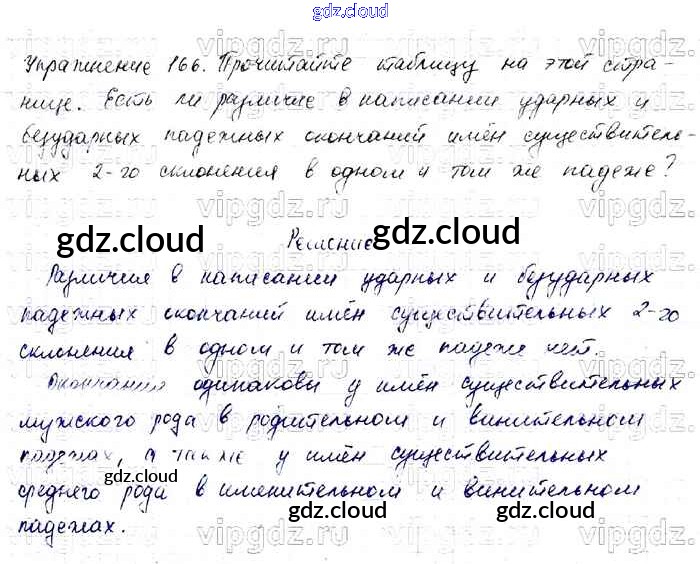 gdz.cloud
Упражнение 166. Прочитайте таблицу на этой стра-
нице. Есть ли различие в написании ударных и
безударных падежных окончаний имён существитель-
ных 2-го склонения в одном и том же падеже?
gdz.cloud Решение gdz.cloud
Различия в написании ударных и безударных
падежных окончаний имён существительных 2-го
склонения в одном и том же падеже нет.
Окончания одинаковы у имён существительных
мужского рода в родительном и винительном
падежах, а также у имён существительных
gdz.cloud
среднего рода в именительном и винительном
gdz.cloud gdz.cloud
падежах.